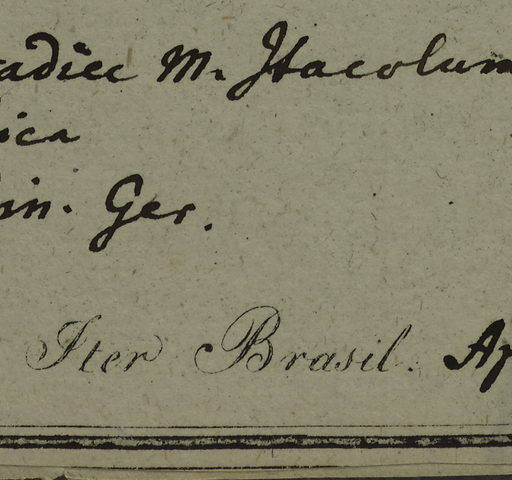 radice M. Itacolum
ica
in. Ger.
Iter Brasil. Ap